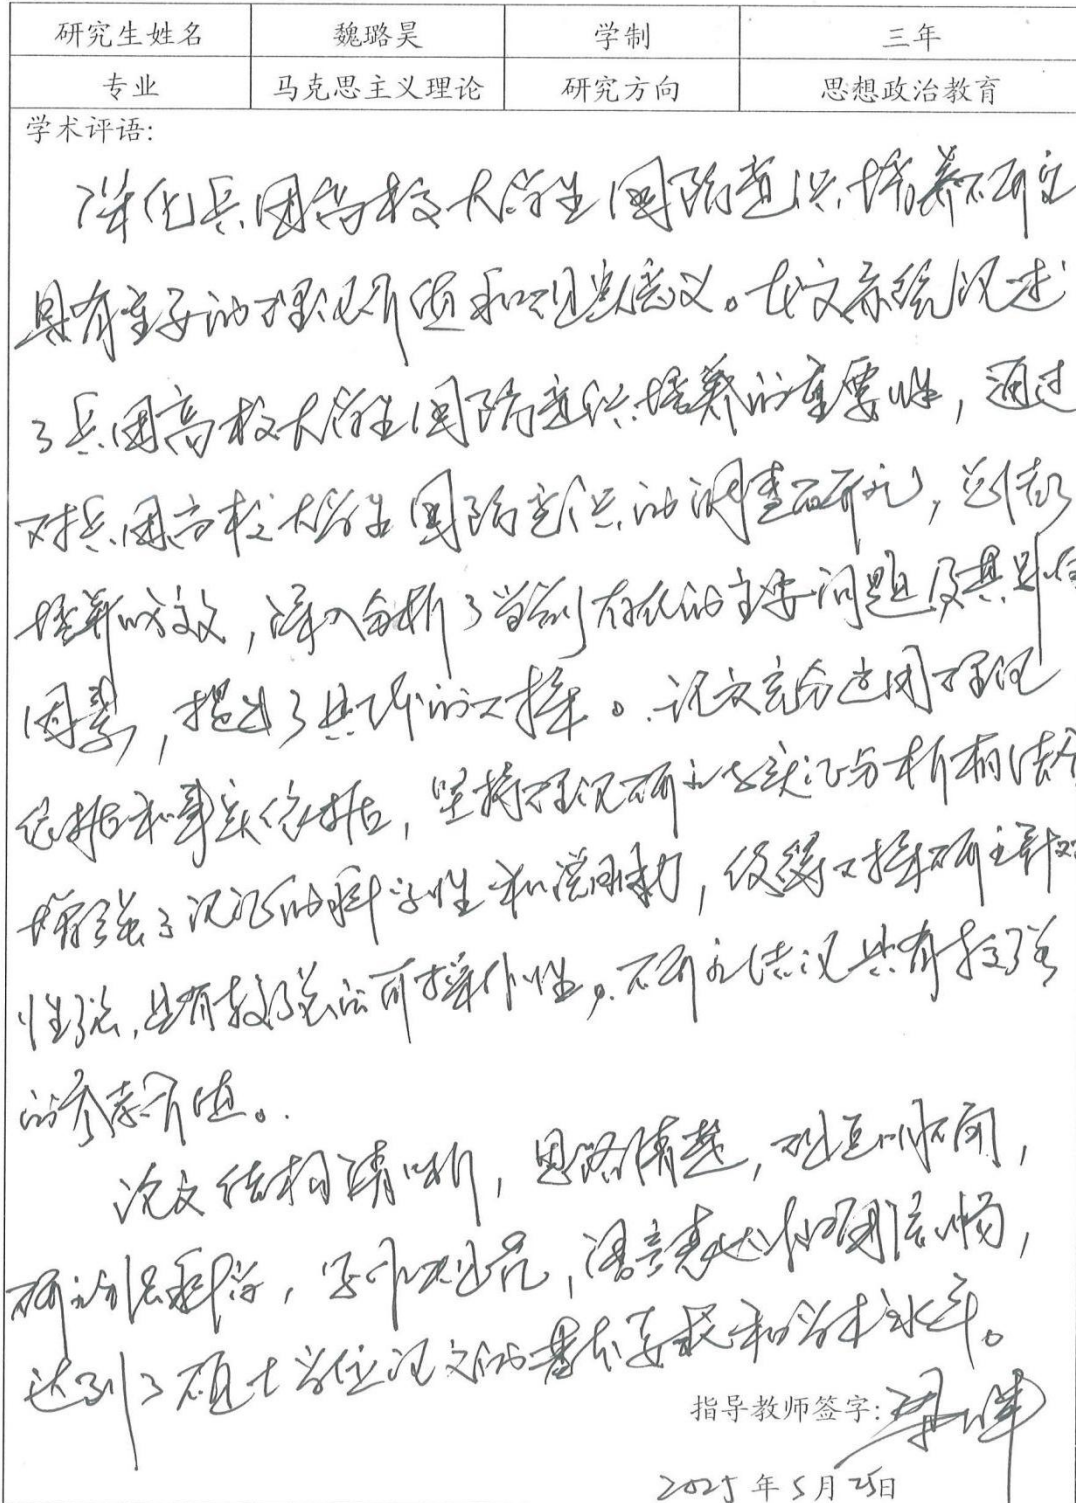 研究生姓名 魏璐昊 学制 三年
专业 马克思主义理论 研究方向 思想政治教育
学术评语:
深化兵团高校大学生国防意识培养研究
具有重要的理论价值和现实意义。本文系统论述
了兵团高校大学生国防意识培养的重要性，通过
对兵团高校大学生国防意识的调查研究，总结了
培养成效，深入分析了当前存在的主要问题及其影响
因素，提出了具体的对策。论文充分运用理论
依据和事实依据，坚持理论研究与实证分析相结合
增强了论证的科学性和说服力，使得对策研究针对
性强，具有较强的可操作性。研究结论具有较强
的参考价值。
论文结构清晰，思路清楚，观点明确，
研究方法科学，写作规范，语言表达准确流畅，
达到了硕士学位论文的基本要求和学术水平。
指导教师签字:
2025年5月25日